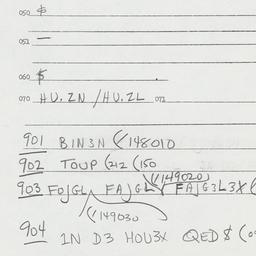 050 $
051 —
060 $ .
070 HU.ZN /HU.ZL 072
901 BIN3N (/148010
902 TOUP (212 (150
(/149020)
903 FOJGL, FAJGL, FAJG3L3X (
(/149030
904 IN D3 HOU3X QED $ (